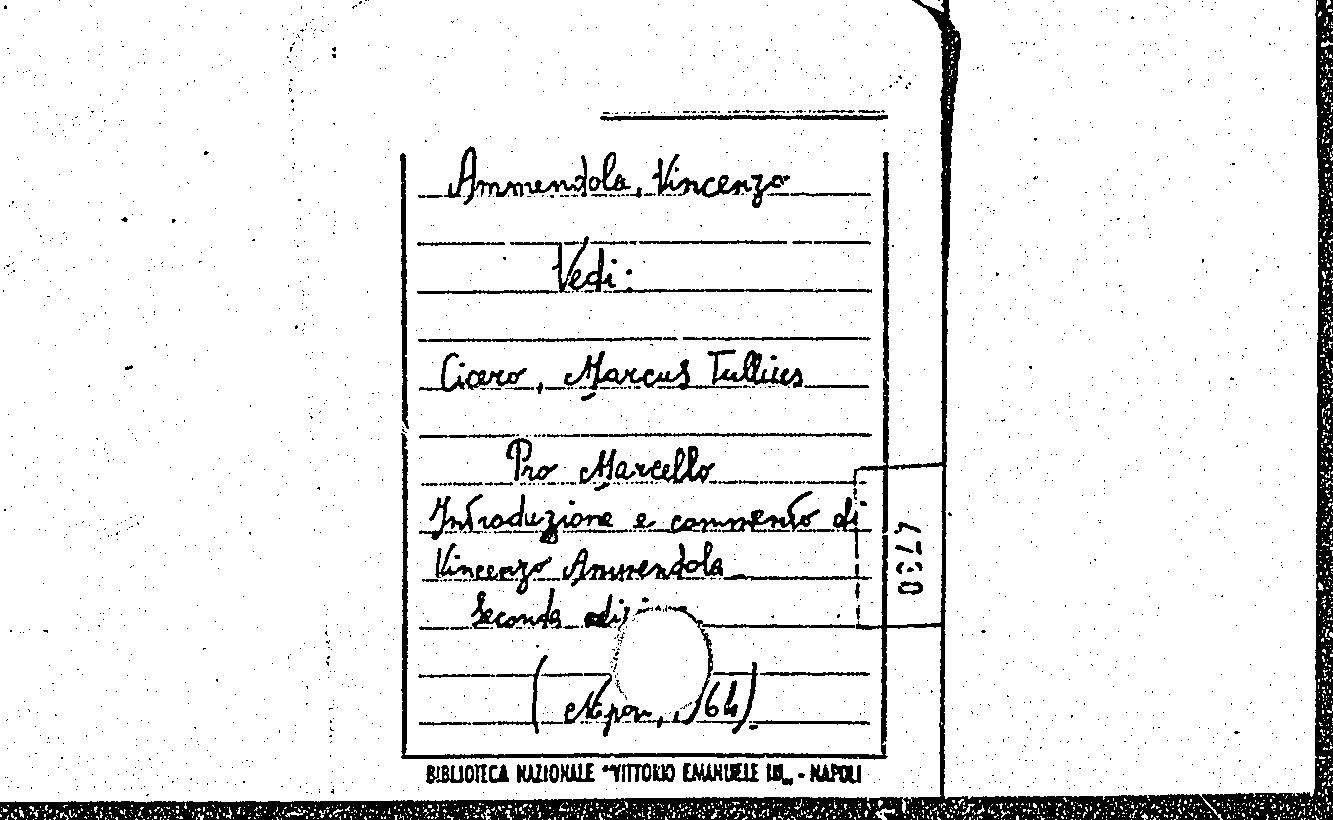 Ammendola, Vincenzo
Vedi:
Cicero, Marcus Tullius
Pro Marcello
Introduzione e commento di
Vincenzo Ammendola
Seconda
(
64)
4730
BIBLIOTECA NAZIONALE "VITTORIO EMANUELE III„ - NAPOLI